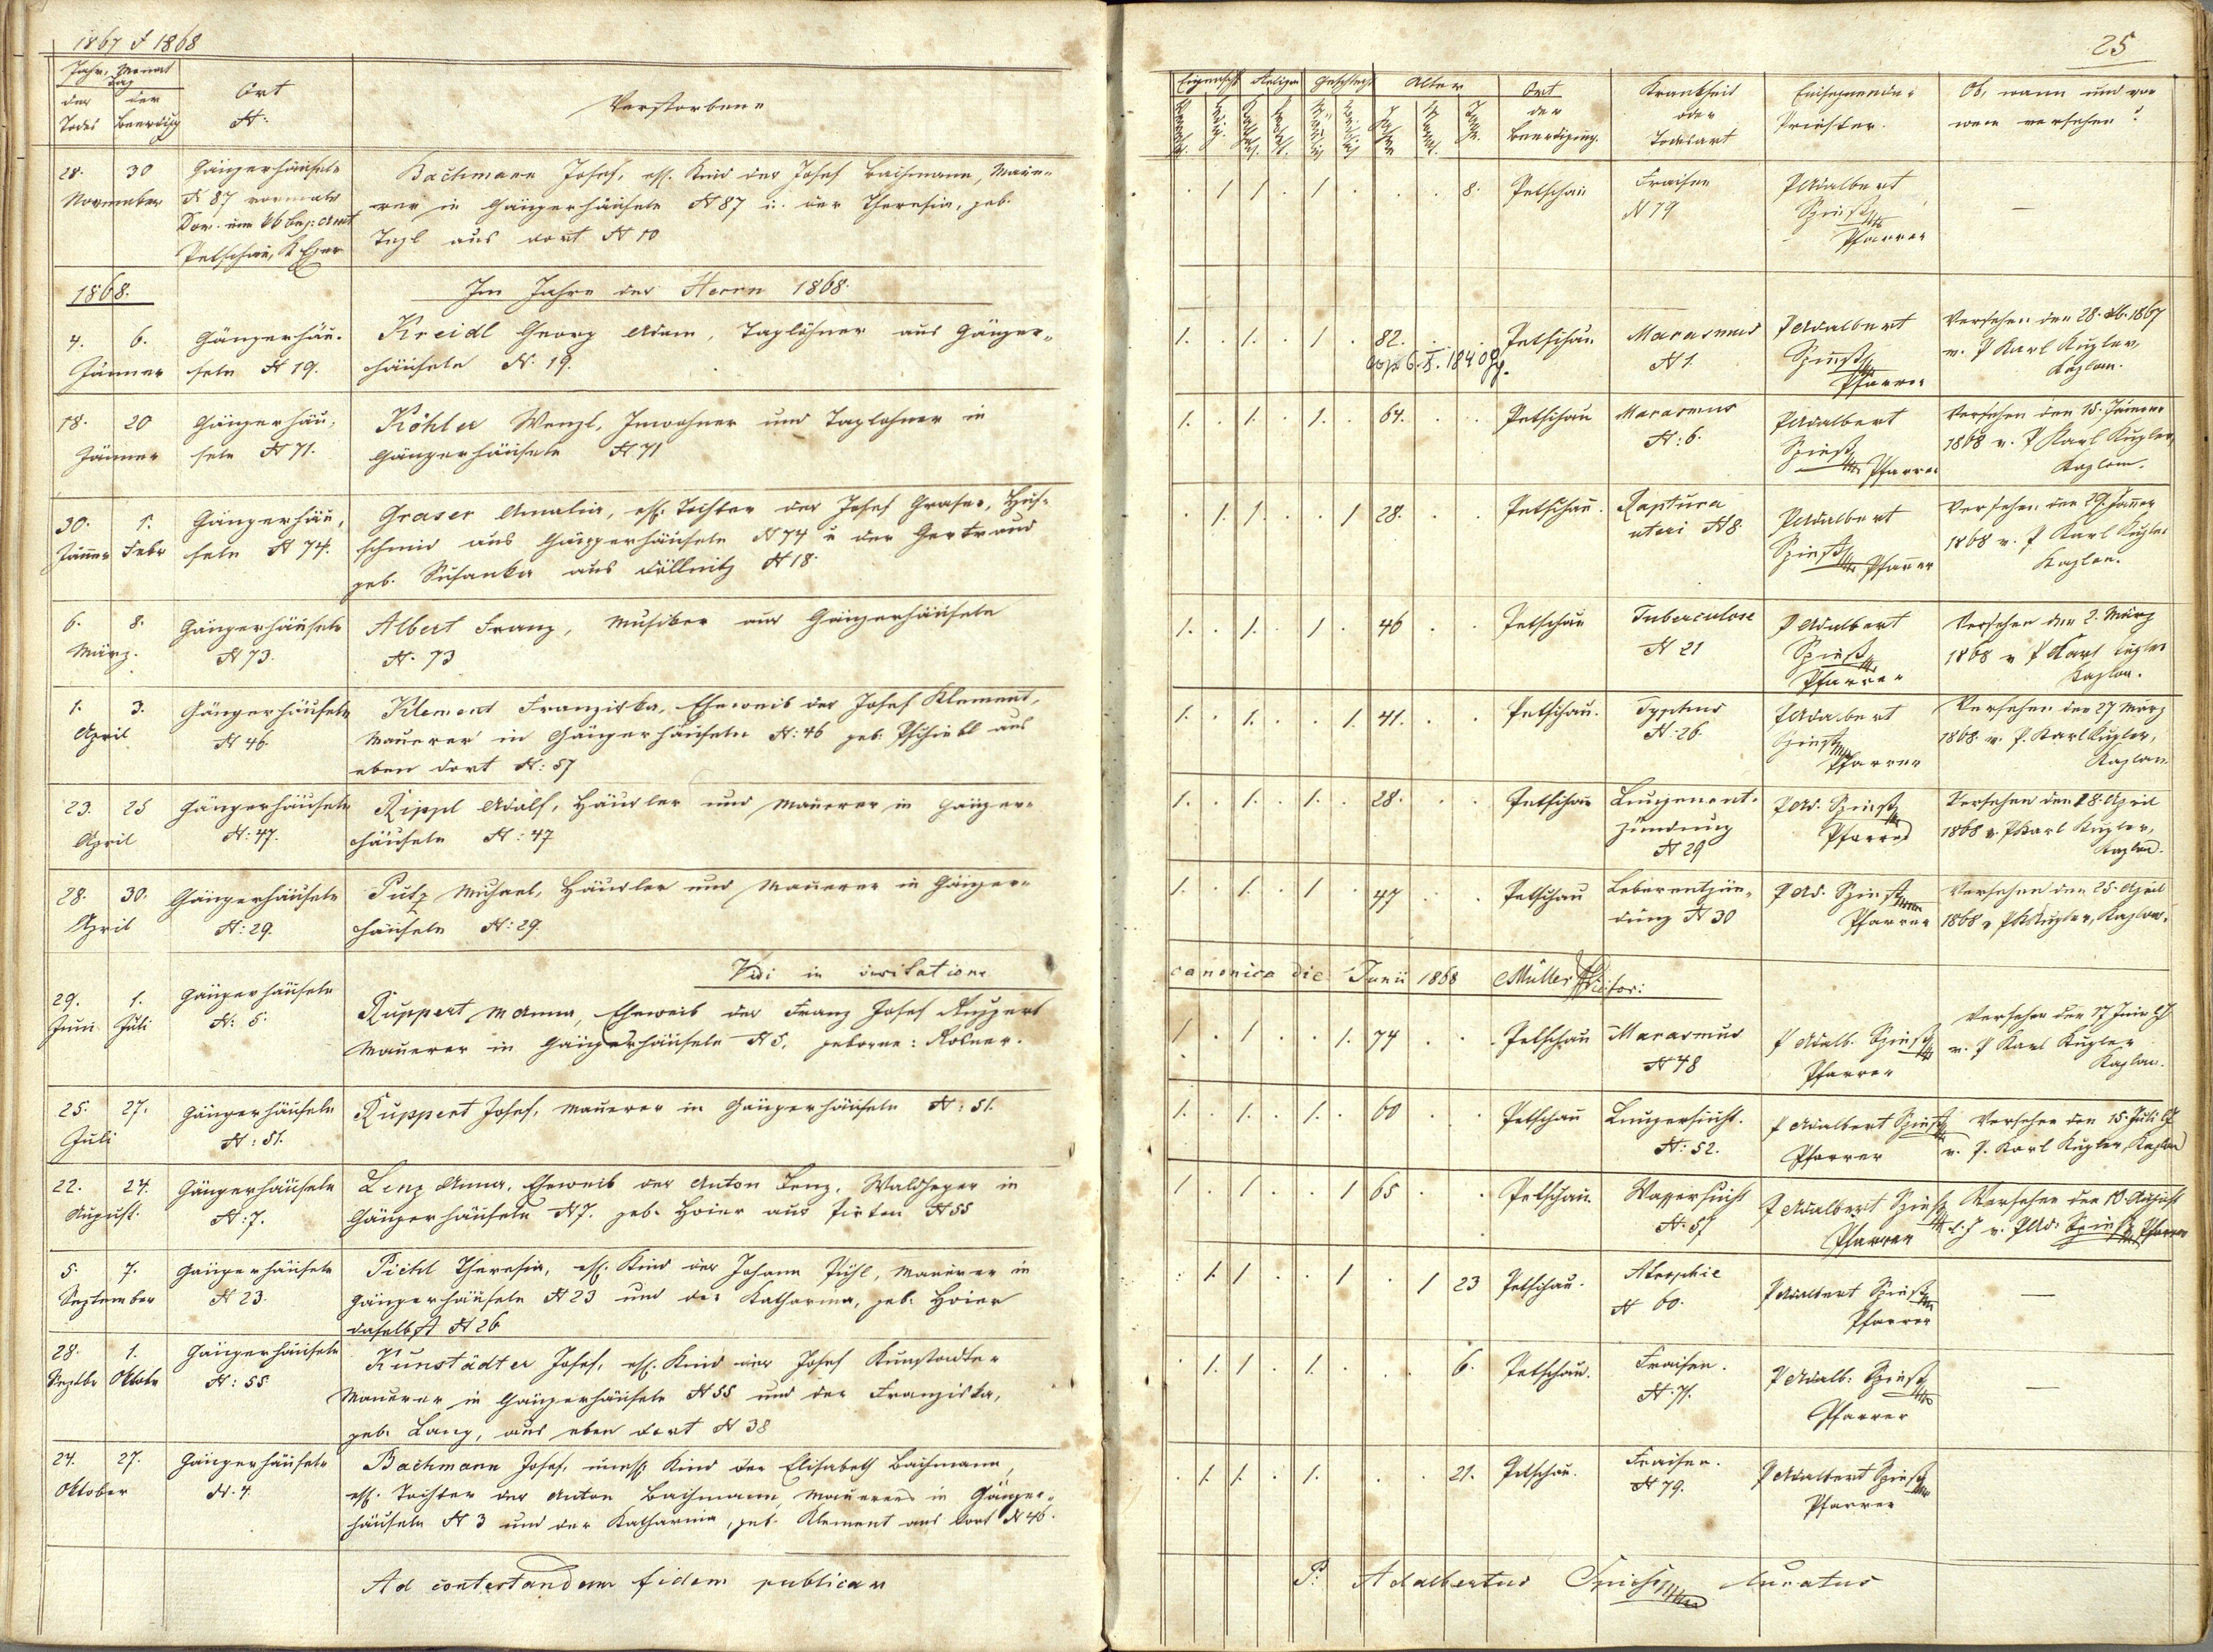 1867 & 1868
Jahr, Monat
Tag
der der
Todes Beerdig
Ort
N:
Verstorbene
28. 30
November
Gängerhäuseln
N 87 vormals
Petschau, K Eger
Bachmann Josef, ehl. Kind des Josef Bachmann, Mau-
rer in Gängerhäuseln N 87 u. der Theresia, geb.
aus dort N 10
1868.
Im Jahre des Herrn 1868.
4. 6.
Jänner
Gängerhäu-
seln N 19.
Kreidl Georg Adam, Taglöhner aus Gänger-
häuseln N. 19.
18. 20
Jänner
Gängerhäu-
seln N 71.
Köhler Wenzl, Inwohner und Taglöhner in
Gängerhäuseln N 71
30. 1.
Jänner Febr
Gängerhäu-
seln N 74.
Graser Amalia, ehl. Tochter des Josef Graser, Huf-
schmid aus Gängerhäuseln N 74 u der Gertraud
geb. Susanka aus Döllnitz N 18.
6. 8.
März.
Gängerhäuseln
N 73.
Albert Franz, Musiker aus Gängerhäuseln
N. 73
1. 3.
April
Gängerhäuseln
N 46.
Klement Franziska, Eheweib des Josef Klement,
Maurer in Gängerhäuseln N: 46 geb. aus
eben dort N: 57
23. 25
April
Gängerhäuseln
N: 47.
Rippl Adolf, Häusler und Maurer in Gänger-
häuseln N: 47
28. 30.
April
Gängerhäuseln
N: 29.
Putz Michael, Häusler und Maurer in Gänger-
häuseln N: 29.
Vidi in visitatione
29. 1.
Juni Juli
Gängerhäuseln
N: 5.
Ruppert M Anna, Eheweib des Franz Josef Ruppert
Maurer in Gängerhäuseln N 5, geborne: Rosner.
25. 27.
Juli
Gängerhäuseln
N: 51.
Ruppert Josef, Maurer in Gängerhäuseln N: 51.
22. 24.
August.
Gängerhäuseln
N: 7.
Lenz Anna, Eheweib des Anton Lenz, Waldheger in
Gängerhäuseln N 7. geb. Hoier aus Pirten N 55
5. 7.
September
Gängerhäuseln
N 23.
Pichl Theresia, ehl. Kind des Johann Pichl, Maurer in
Gängerhäuseln N 23 und der Katharina, geb. Hoier
daselbst N 26
28. 1.
Septbr Oktobr
Gängerhäuseln
N: 55.
Kunstädter Josef, ehl. Kind des Josef Kunstadter
Maurer in Gängerhäuseln N 55 und der Franziska,
geb. Lang, aus eben dort N 38
24. 27.
Oktober
Gängerhäuseln
N. 4.
Bachmann Josef, unehl. Kind der Elisabeth Bachmann,
ehl. Tochter des Anton Bachmann, Maurers in Gänger-
häuseln N 3 und der Katharina, geb. Klement aus dort N 46.
Ad contestandam fidem publicam
25
Eigensch Religion Geschlecht Alter
Ort
der
Beerdigung.
Krankheit
oder
Todesart
Einsegnender
Priester.
Ob, wann und von
wem versehen?
1 1 1 8. Petschau
Fraisen
N 79
P Adalbert
Spieß
Pfarrer
—
1. 1. 1 82. Petschau
cop. 6. X. 1840
Marasmus
N 1.
P Adalbert
Spieß
Pfarrer
Versehen den 28. 1867
v. P Karl Kugler,
Kaplan.
1. 1. 1. 64. Petschau
Marasmus
N: 6.
P Adalbert
Spieß
Pfarrer
Versehen den 15. Jänner
1868 v. P Karl Kugler,
Kaplan.
1. 1. 1 28. Petschau.
Raptura
uteri N 8
P Adalbert
Spieß Pfarrer
Versehen den 29. Jänner
1868 v. P Karl Kugler
Kaplan.
1. 1. 1 46 Petschau
Tuberculose
N 21
P Adalbert
Spieß
Pfarrer
Versehen den 2. März
1868 v P Karl Kugler
Kaplan.
1. 1. 1. 41. Petschau.
Typhus
N. 26.
P Adalbert
Spieß
Pfarrer
Versehen den 27 März
1868. v. P. Karl Kugler,
Kaplan.
1. 1. 1. 28. Petschau
Lungenent-
zündung
N 29
P Ad. Spieß
Pfarrer
Versehen den 18. April
1868 v. P Karl Kugler,
Kaplan.
1. 1. 1 47 Petschau
Leberentzün-
dung N 30
P Ad. Spieß
Pfarrer
Versehen den 25. April
1868 v P K Kugler, Kaplan.
canonica die Junii 1868 Müller
1 1 1. 74 Petschau
Marasmus
N 48
P Adalb. Spieß
Pfarrer
Versehen den 17 Juni
v. P Karl Kugler
Kaplan.
1. 1. 1. 60 Petschau
Lungensucht.
N: 52.
P Adalbert Spieß
Pfarrer
Versehen den 15. Juli
v. P. Karl Kugler, Kaplan
1 1 1 65 Petschau.
Wassersucht
N. 57
P Adalbert Spieß
Pfarrer
Versehen den 10. August
v. P Ad. Spieß Pfarrer
1. 1 1 1 23 Petschau.
Atrophie
N 60.
P Adalbert Spieß
Pfarrer
—
1. 1 1. 6. Petschau.
Fraisen.
N: 71.
P Adalb. Spieß
Pfarrer
—
1. 1. 1. 21. Petschau.
Fraisen.
N 79.
P Adalbert Spieß
Pfarrer
P. Adalbertus Spieß Curatus